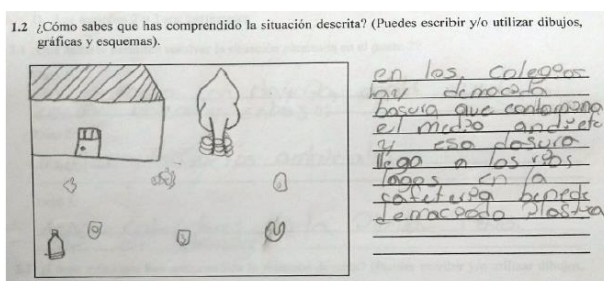 1.2 ¿Cómo sabes que has comprendido la situación descrita? (Puedes escribir y/o utilizar dibujos,
gráficas y esquemas).
en los colegoos
hay democada
basura que contamana
el medio
y esa basura
llega a los rios
lagos en la
cafeteria
demacoada plastea